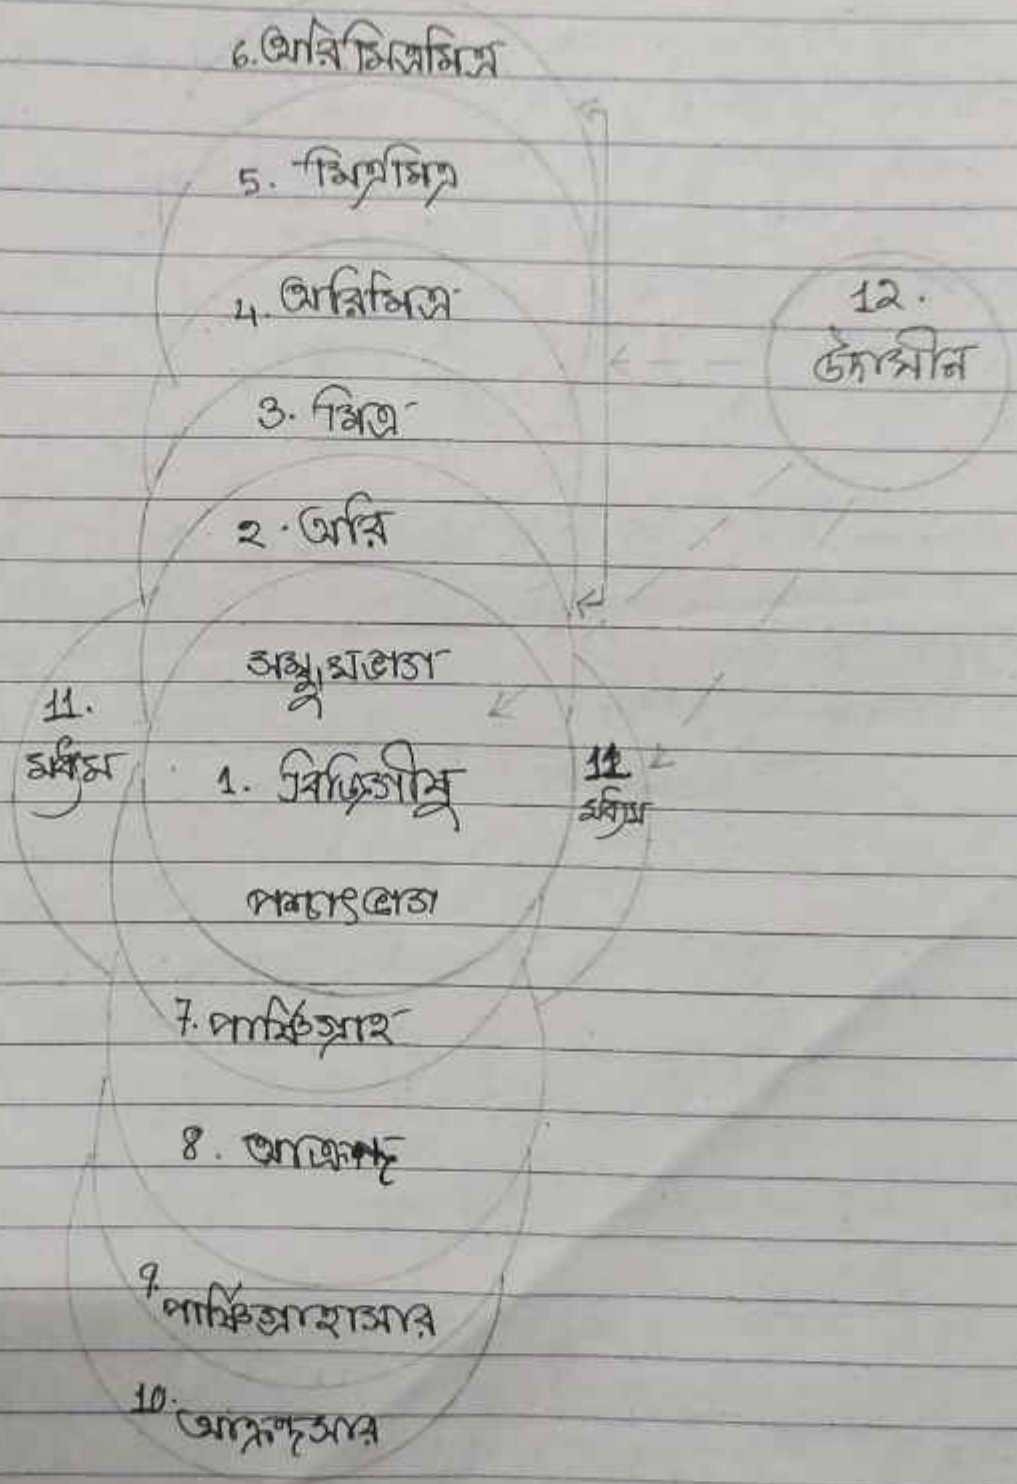 6. অরিমিত্রমিত্র
5. মিত্রমিত্র
4. অরিমিত্র
12.
উদাসীন
3. মিত্র
2. অরি
সম্মুখভাগ
11.
মধ্যম
1. বিজিগীষু
11
মধ্যম
পশ্চাৎভাগ
7. পার্ষ্ণিগ্রাহ
8. আক্রন্দ
9. পার্ষ্ণিগ্রাহাসার
10. আক্রন্দসার